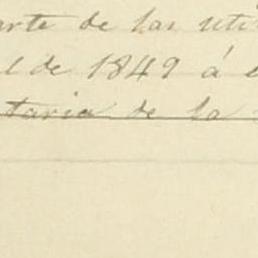 arte de las uti
l de 1849 á e
taria de la